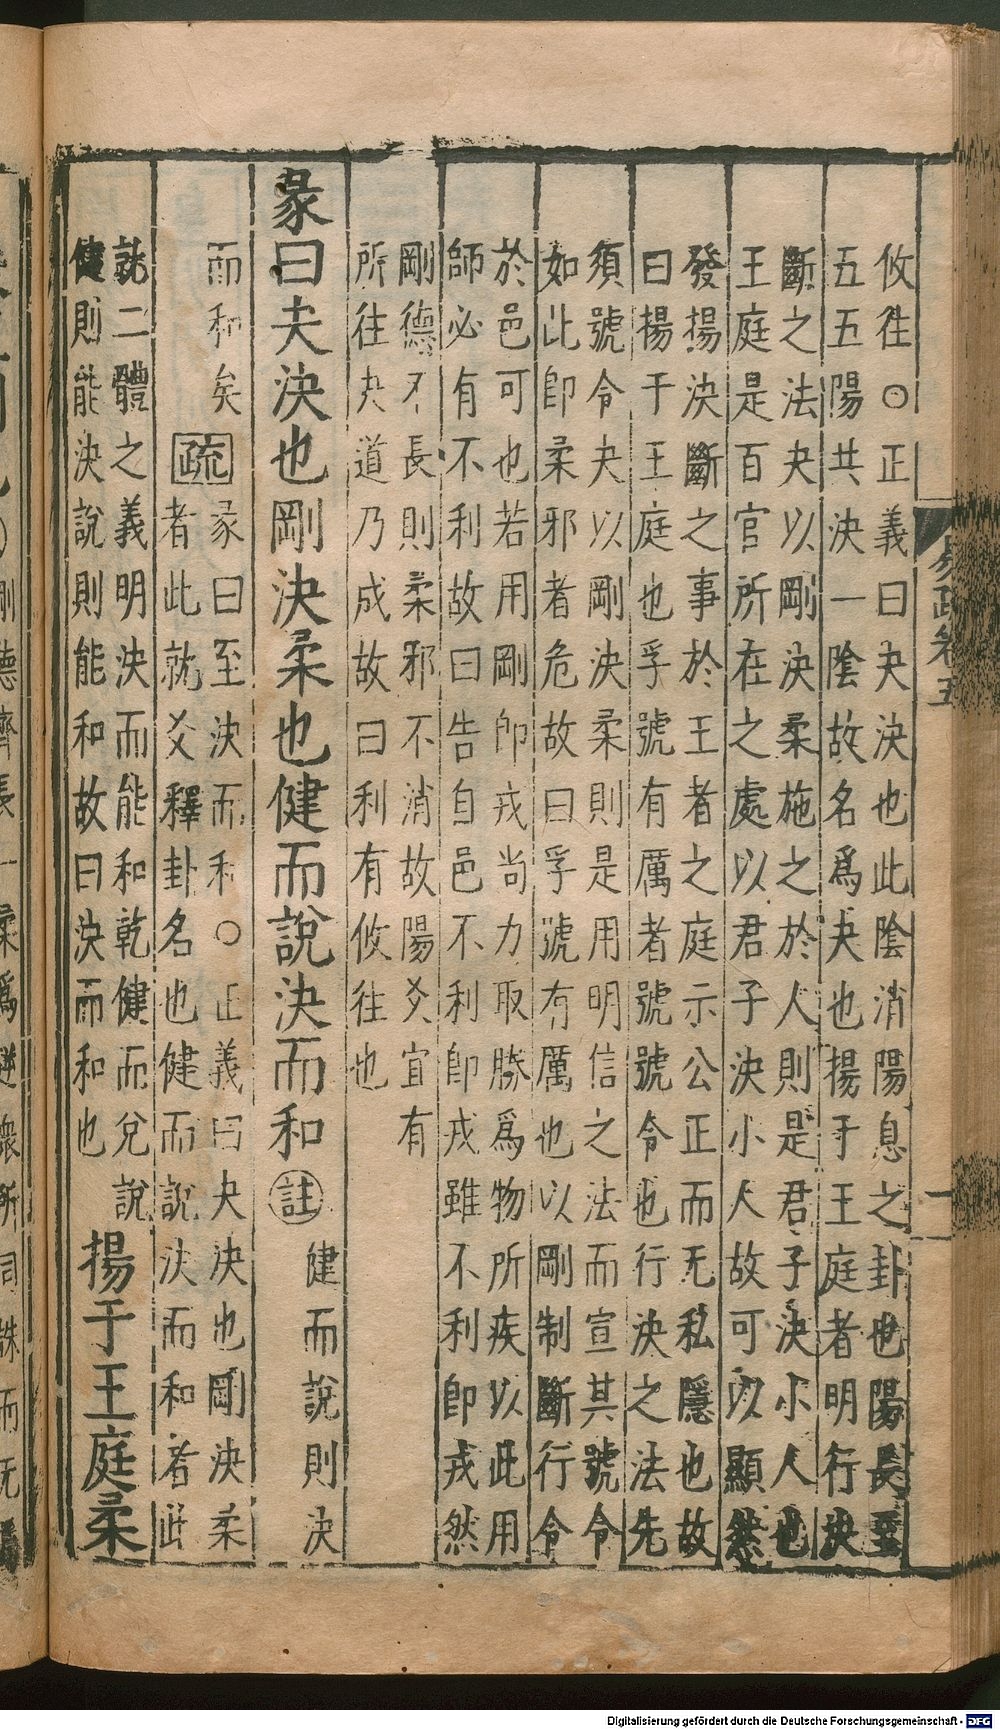 攸往○正義曰夬決也此陰消陽息之卦也陽長至
五五陽共決一陰故名爲夬也揚于王庭者明行決
斷之法夬以剛決柔施之於人則是君子決小人也
王庭是百官所在之處以君子決小人故可以顯然
發揚決斷之事於王者之庭示公正而无私隱也故
曰揚于王庭也孚號有厲者號號令也行決之法先
須號令夬以剛決柔則是用明信之法而宣其號令
如此卽柔邪者危故曰孚號有厲也以剛制斷行令
於邑可也若用剛卽戎尚力取勝爲物所疾以此用
師必有不利故曰告自邑不利卽戎雖不利卽戎然
剛德不長則柔邪不消故陽爻宜有
所往夬道乃成故曰利有攸往也
彖曰夬決也剛決柔也健而說決而和
註
健而說則決
而和矣
疏
彖曰至決而和○正義曰夬決也剛決柔
者此就爻釋卦名也健而說決而和者此
就二體之義明決而能和乾健而兌說
健則能決說則能和故曰決而和也
揚于王庭柔
易疏卷五
一
Digitalisierung gefördert durch die Deutsche Forschungsgemeinschaft - DFG